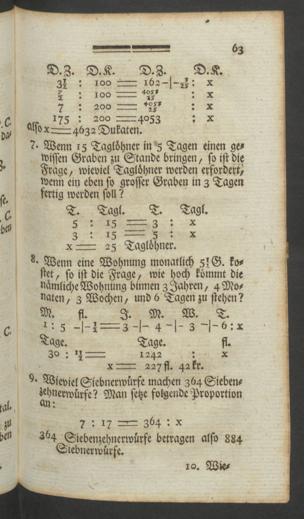 63
D. Z. D. K. D. Z. D. K.
3½ : 100 = 162 -|- 3/25 : x
7/2 : 100 = 4053/25 : x
7 : 200 = 4053/25 : x
175 : 200 = 4053 : x
also x = 4632 Dukaten.
7. Wenn 15 Taglöhner in 5 Tagen einen ge=
wissen Graben zu Stande bringen, so ist die
Frage, wieviel Taglöhner werden erfordert,
wenn ein eben so grosser Graben in 3 Tagen
fertig werden soll?
T. Tagl. T. Tagl.
5 : 15 = 3 : x
3 : 15 = 5 : x
x = 25 Taglöhner.
8. Wenn eine Wohnung monatlich 5½ G. ko=
stet, so ist die Frage, wie hoch kömmt die
nämliche Wohnung binnen 3 Jahren, 4 Mo=
naten, 3 Wochen, und 6 Tagen zu stehen?
M. fl. J. M. W. T.
1 : 5 -|- ½ = 3 -|- 4 -|- 3 -|- 6 : x
Tage. Tage. fl.
30 : 11/2 = 1242 : x
x = 227 fl. 42 kr.
9. Wieviel Siebnerwürfe machen 364 Sieben=
zehnerwürfe? Man setze folgende Proportion
an:
7 : 17 = 364 : x
364 Siebenzehnerwürfe betragen also 884
Siebnerwürfe.
10. Wie=